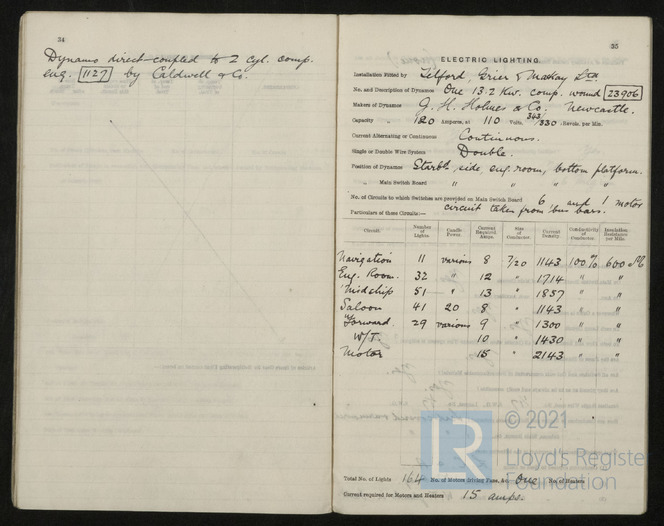 34
Dynamo direct-coupled to 2 cyl. comp.
eng. 1127 by Caldwell & Co.
35
ELECTRIC LIGHTING.
Installation Fitted by Telford, Grier & Mackay Ltd
No. and Description of Dynamos One 13.2 Kw. comp. wound 23906
Makers of Dynamos J. H. Holmes & Co. Newcastle.
Capacity " 120 Amperes, at 110 Volts, 343/330 Revols. per Min.
Current Alternating or Continuous Continuous.
Single or Double Wire System Double.
Position of Dynamos Starbd. side, eng. room, bottom platform.
" Main Switch Board " " "
No. of Circuits to which Switches are provided on Main Switch Board 6 and 1 motor
Particulars of these Circuits:— circuit taken from 'bus bars.
Circuit. Number of Lights Candle Power. Current Required Amps. Size of Conductor. Current Density. Conductivity of Conductor. Insulation Resistance per Mile.
Navigation 11 various 8 7/20 1143 100% 600
Eng. Room. 32 " 12 " 1714 " "
Midship 51 " 13 " 1857 " "
Saloon 41 20 8 " 1143 " "
Forward. 29 various 9 " 1300 " "
W/T. 10 " 1430 " "
Motor 15 " 2143 " "
© 2021
LR
Lloyd's Register
Foundation
Total No. of Lights 164 No. of Motors driving Fans, &c. One No. of Heaters
Current required for Motors and Heaters 15 amps.